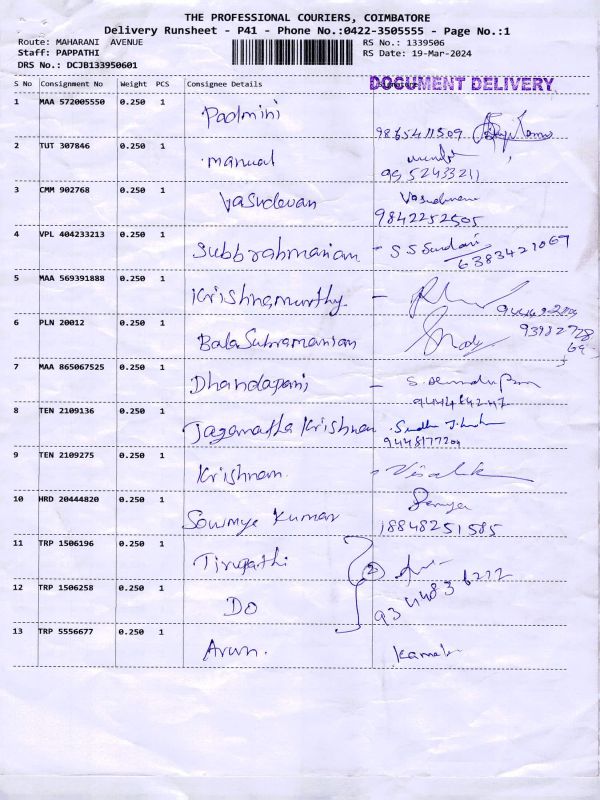 THE PROFESSIONAL COURIERS, COIMBATORE
Delivery Runsheet - P41 - Phone No.:0422-3505555 - Page No.:1
Route: MAHARANI AVENUE RS No.: 1339506
Staff: PAPPATHI RS Date: 19-Mar-2024
DRS No.: DCJB133950601
S No Consignment No Weight PCS Consignee Details DOCUMENT DELIVERY
1 MAA 572005550 0.250 1 Padmini
9865411509
2 TUT 307846 0.250 1 manual
9952433211
3 CMM 902768 0.250 1 Vasudevan
9842252505
4 VPL 404233213 0.250 1 Subbrahmaniam - S S Sundari
6383421069
5 MAA 569391888 0.250 1 Krishnamurthy -
6 PLN 20012 0.250 1 BalaSubramaniam
7 MAA 865067525 0.250 1 Dhandapani -
8 TEN 2109136 0.250 1 Jaganatha Krishnan
9448177204
9 TEN 2109275 0.250 1 Krishnan
10 HRD 20444820 0.250 1 Sowmya Kumar
18848251585
11 TRP 1506196 0.250 1 Tirupathi 2
12 TRP 1506258 0.250 1 Do
13 TRP 5556677 0.250 1 Arun.